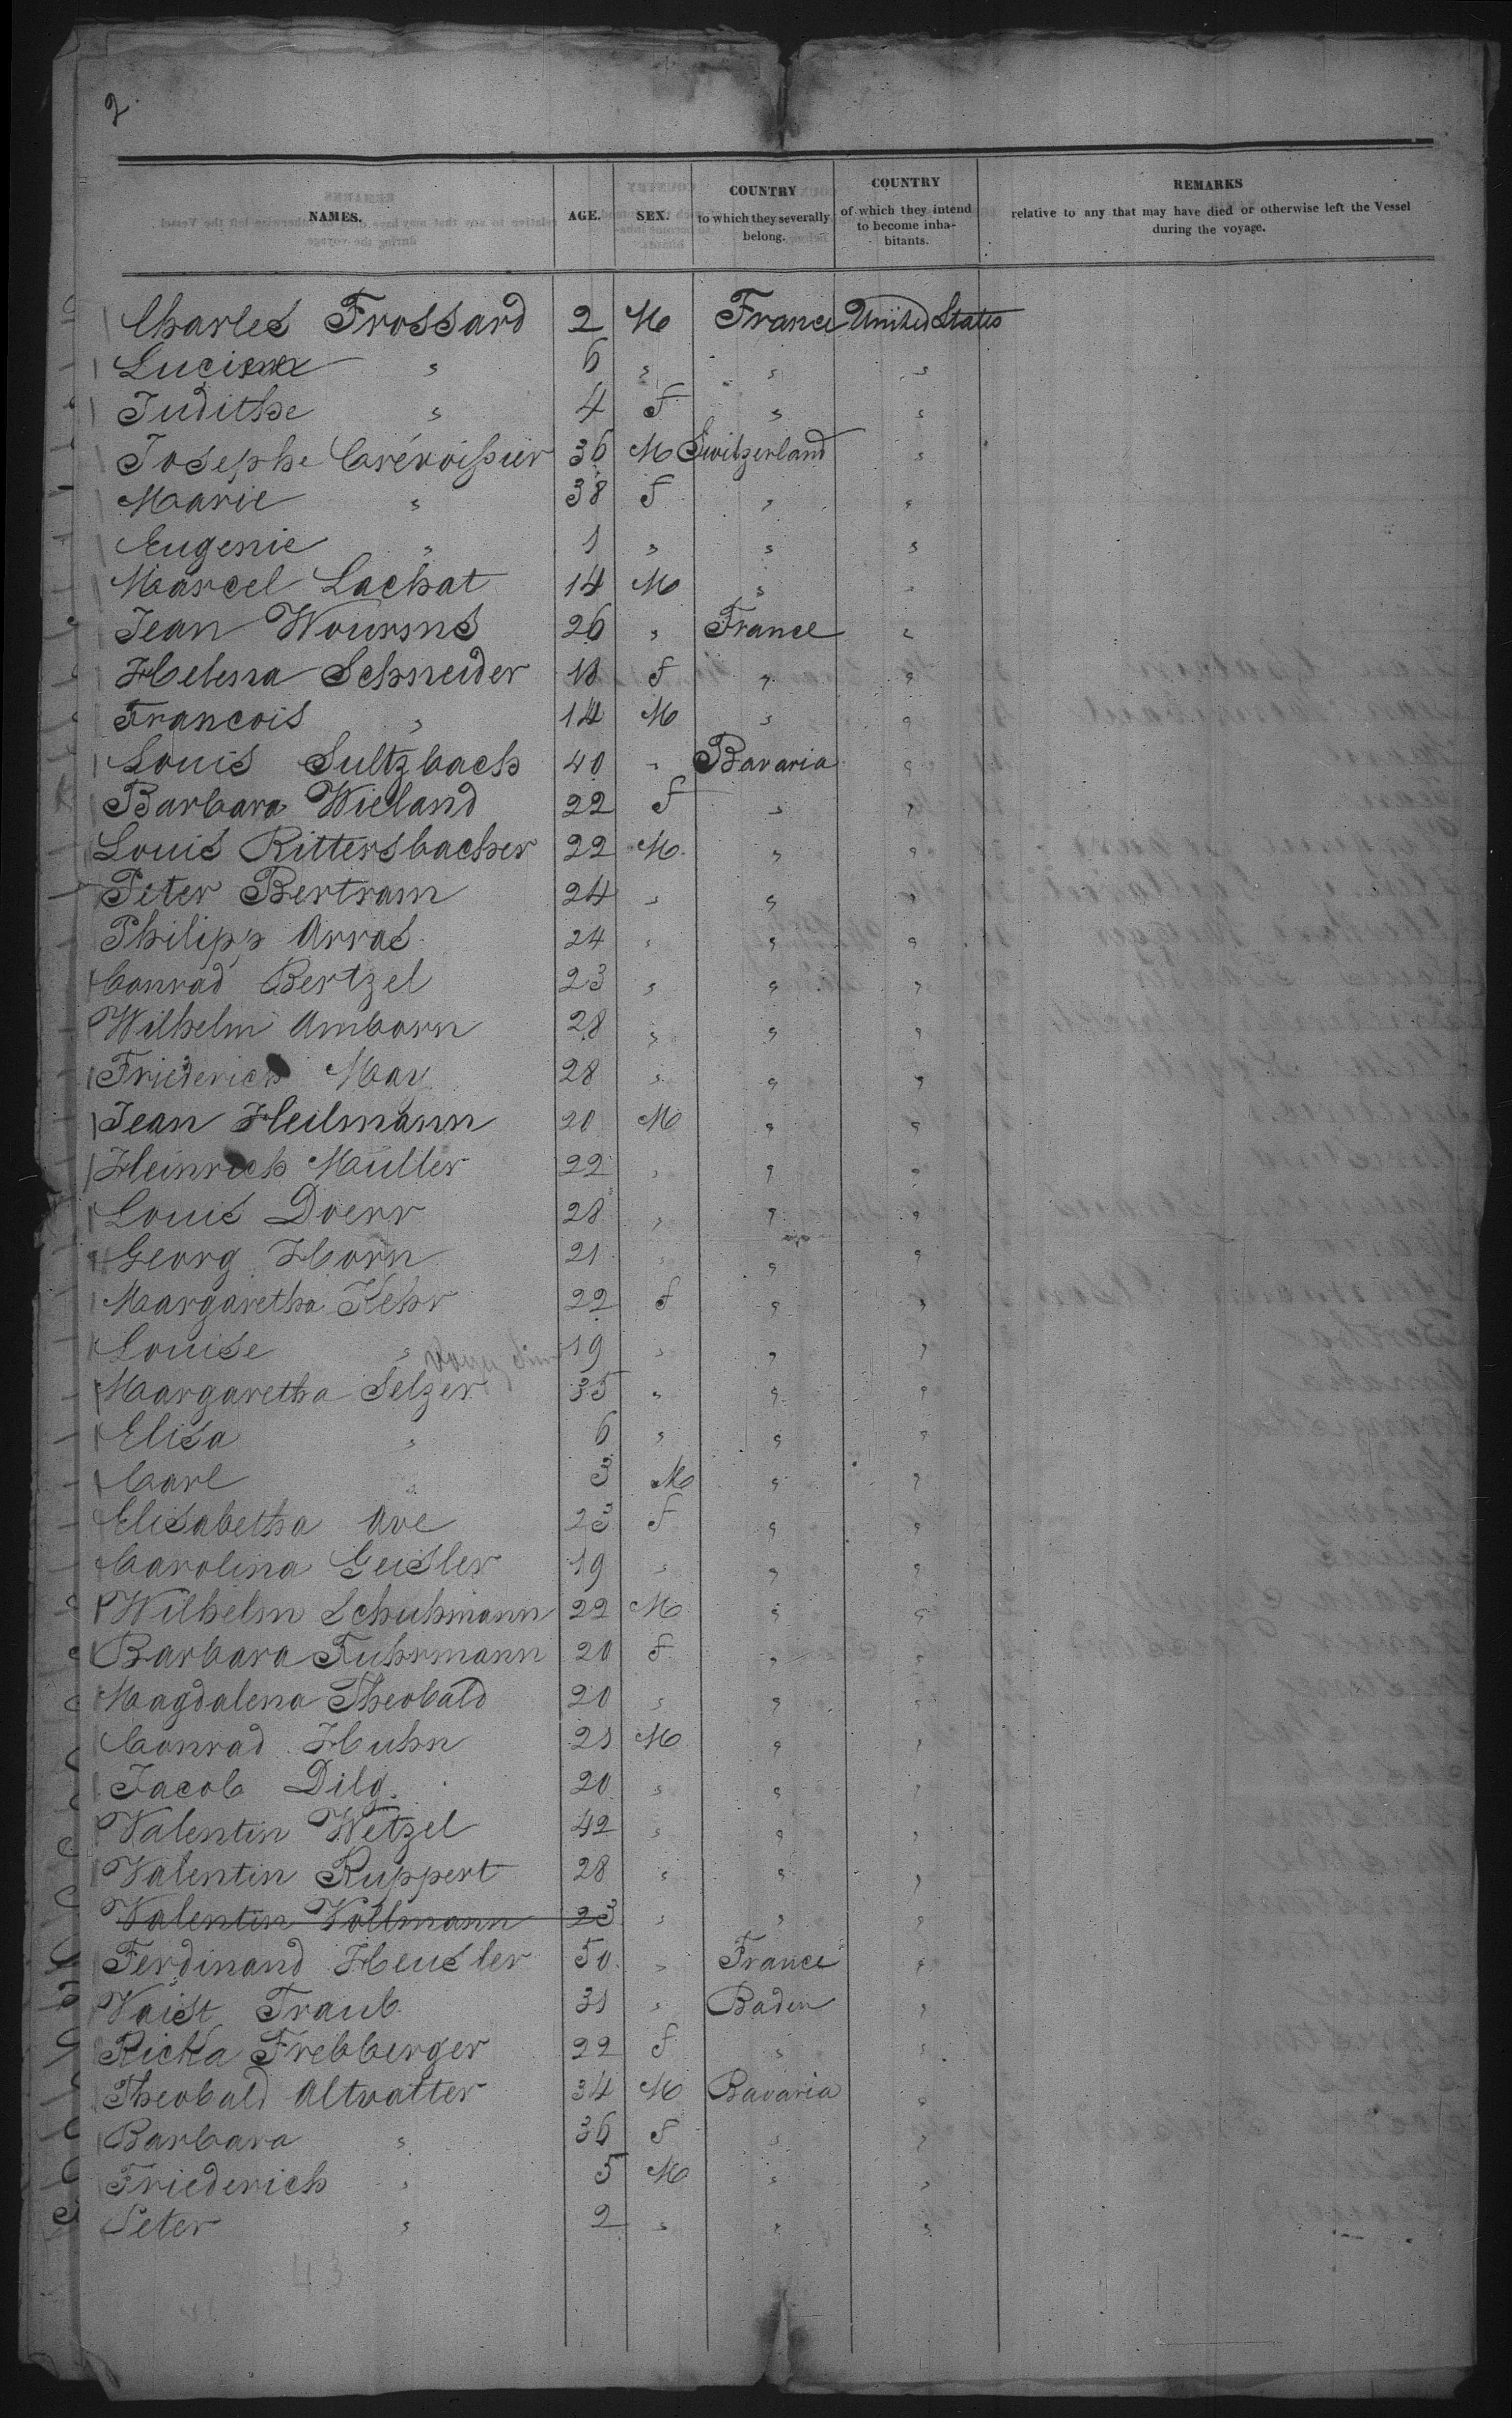 2.
NAMES. AGE. SEX. COUNTRY to which they severally belong. COUNTRY of which they intend to become inhabitants. REMARKS relative to any that may have died or otherwise left the Vessel during the voyage.
Charles Frossard 2 M France United States
Lucien " 6 " " "
Judithe " 4 F " "
Josephe Crévoisier 36 M Switzerland "
Marie " 38 F " "
Eugenie " 1 " " "
Marcel Lachat 14 M " "
Jean Woursns 26 " France "
Helena Schneider 18 F " "
Francois " 14 M " "
Louis Sultzbach 40 " Bavaria "
Barbara Wieland 22 F " "
Louis Rittersbacher 22 M " "
Peter Bertram 24 " " "
Philipp Arras 24 " " "
Conrad Bertzel 23 " " "
Wilhelm Amborn 28 " " "
Friederich May 28 " " "
Jean Heilmann 20 M " "
Heinrich Müller 22 " " "
Louis Doerr 28 " " "
Georg Horn 21 " " "
Margaretha Kehr 22 F " "
Louise " 19 " " "
Margaretha Selzer 35 " " "
Elisa " 6 " " "
Carl " 3 M " "
Elisabetha Ave 23 F " "
Carolina Geisler 19 " " "
Wilhelm Schuhmann 22 M " "
Barbara Fuhrmann 20 F " "
Magdalena Theobald 20 " " "
Conrad Huhn 21 M " "
Jacob Dilg. 20 " " "
Valentin Wetzel 42 " " "
Valentin Ruppert 28 " " "
Valentin Vollmann 23 " " "
Ferdinand Heusler 50 " France "
Vaist Traub 31 " Baden "
Ricka Frebberger 22 F " "
Theobald Altvatter 34 M Bavaria "
Barbara " 36 F " "
Friederich " 5 M " "
Peter " 2 " " "
43